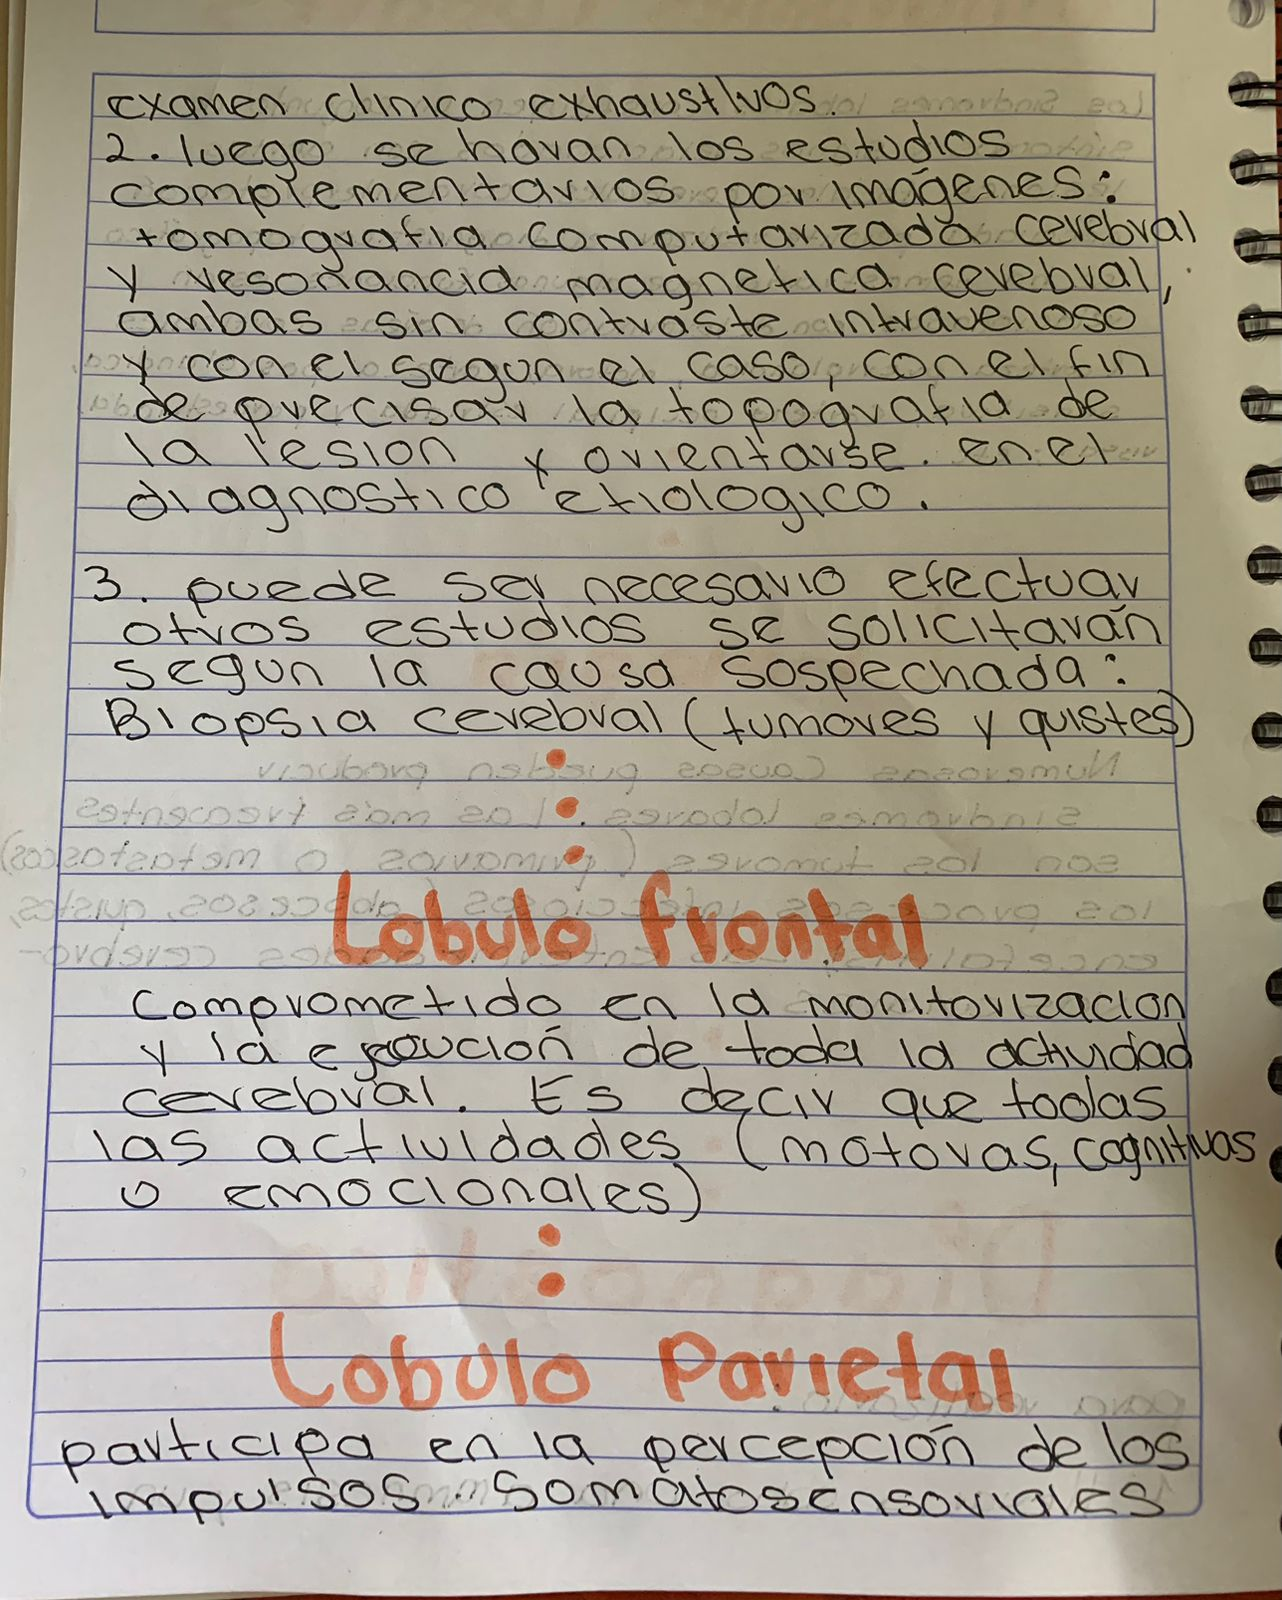 examen clinico exhaustivos.
2. luego se haran los estudios
complementarios por imágenes:
tomografia computarizada cerebral
y resonancia magnetica cerebral,
ambas sin contraste intravenoso
y con el segun el caso, con el fin
de precisar la topografia de
la lesion y orientarse. en el
diagnostico etiologico.
3. puede ser necesario efectuar
otros estudios se solicitarán
segun la causa sospechada:
Biopsia cerebral (tumores y quistes)
Lobulo frontal
Comprometido en la monitorizacion
y la ejecución de toda la actividad
cerebral. Es decir que todas
las actividades (motoras, cognitivas
o emocionales)
Lobulo Parietal
participa en la percepción de los
impulsos somatosensoriales